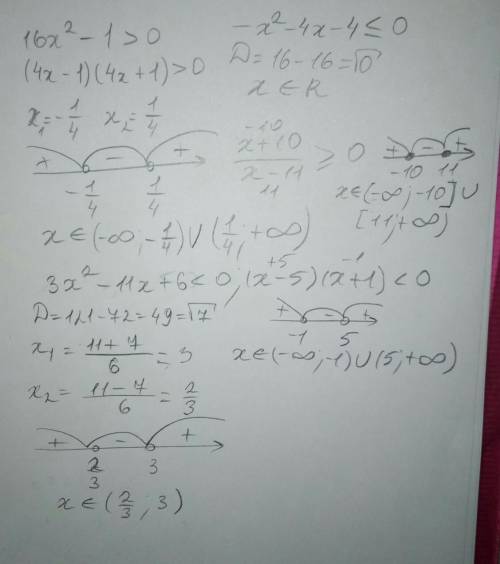 16x² − 1 > 0
(4x−1)(4x+1) > 0
x₁ = −1/4   x₂ = 1/4
+ − +
−1/4   1/4
x ∈ (−∞; −1/4) ∪ (1/4; +∞)
−x² − 4x − 4 ≤ 0
D = 16 − 16 = √0
x ∈ R
−10
(x+10)/(x−11) ≥ 0
11
+ − +
−10   11
x ∈ (−∞; −10] ∪
[11; +∞)
3x² − 11x + 6 < 0;
D = 121 − 72 = 49 = √7
x₁ = (11+7)/6 = 3
x₂ = (11−7)/6 = 2/3
+ − +
2/3   3
x ∈ (2/3; 3)
+5   −1
(x−5)(x+1) < 0
+ − +
−1   5
x ∈ (−∞; −1) ∪ (5; +∞)